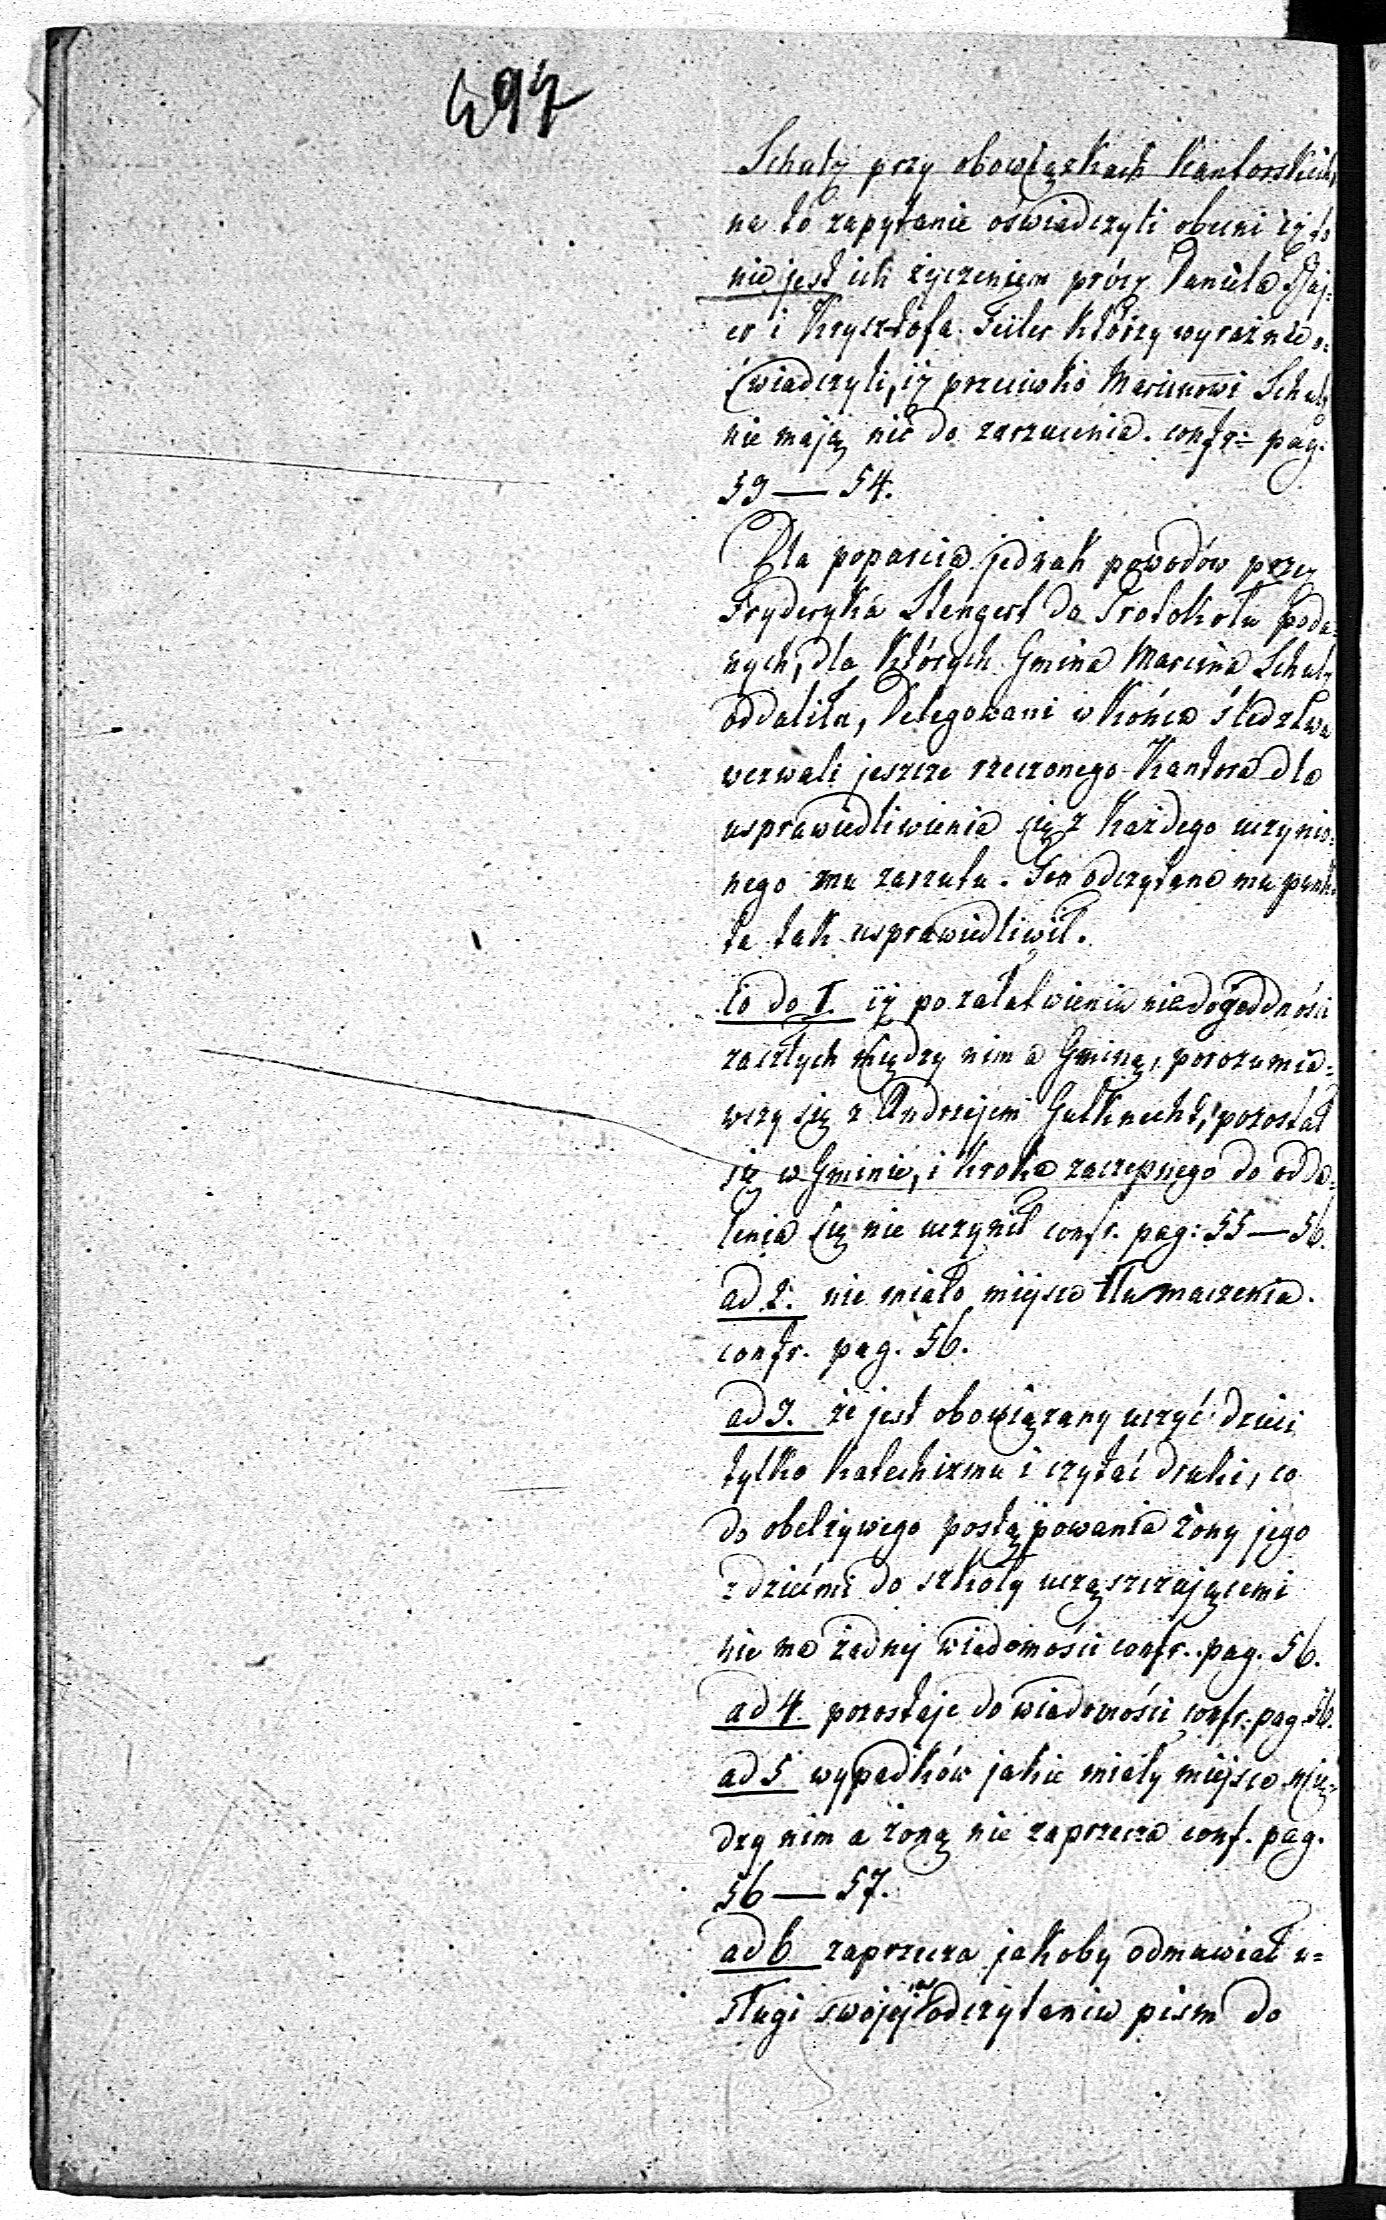 497
Schulz przy obowiązkach Kantorskich,
na to zapytanie oświadczyli obecni iż to
nie jest ich życzeniem prócz Daniela
er i Krysztofa Feiler którzy wyraźnie o=
świadczyli, iż przeciwko Marcinowi Schulz
nie mają nic do zarzucenia. confr: pag.
53 — 54.
Dla poparcia jednak powodów przez
Fryderyka Stengert do Protokołu poda=
nych, dla których Gmina Marcina Schulz
oddaliła, Delegowani w końcu śledztwa
wezwali jeszcze rzeczonego Kantora dla
usprawiedliwienia się z każdego uczynio=
nego mu zarzutu. Ten odczytane mu punk=
ta tak usprawiedliwił.
Co do 1. iż po załatwieniu niedogodności
zaszłych między nim a Gminą, porozumia=
wszy się z Andrzejem Gutknecht, pozostał
się w Gminie, i kroku zaczepnego do odda=
lenia się nie uczynił confr. pag: 55 — 56.
ad 2. nie miało miejsca tłumaczenia.
confr. pag. 56.
ad 3. że jest obowiązany uczyć dzieci
tylko Katechizmu i czytać druki, co
do obelżywego postąpowania żony jego
z dziećmi do szkoły uczęszczającemi
nie ma żadnej wiadomości confr. pag. 56.
ad 4. pozostaje do wiadomości confr. pag. 56.
ad 5 wypadków jakie miały miejsce mię=
dzy nim a żoną nie zaprzecza conf. pag.
56 — 57.
ad 6 zaprzecza jakoby odmawiał u=
sługi swojej w odczytaniu pism do